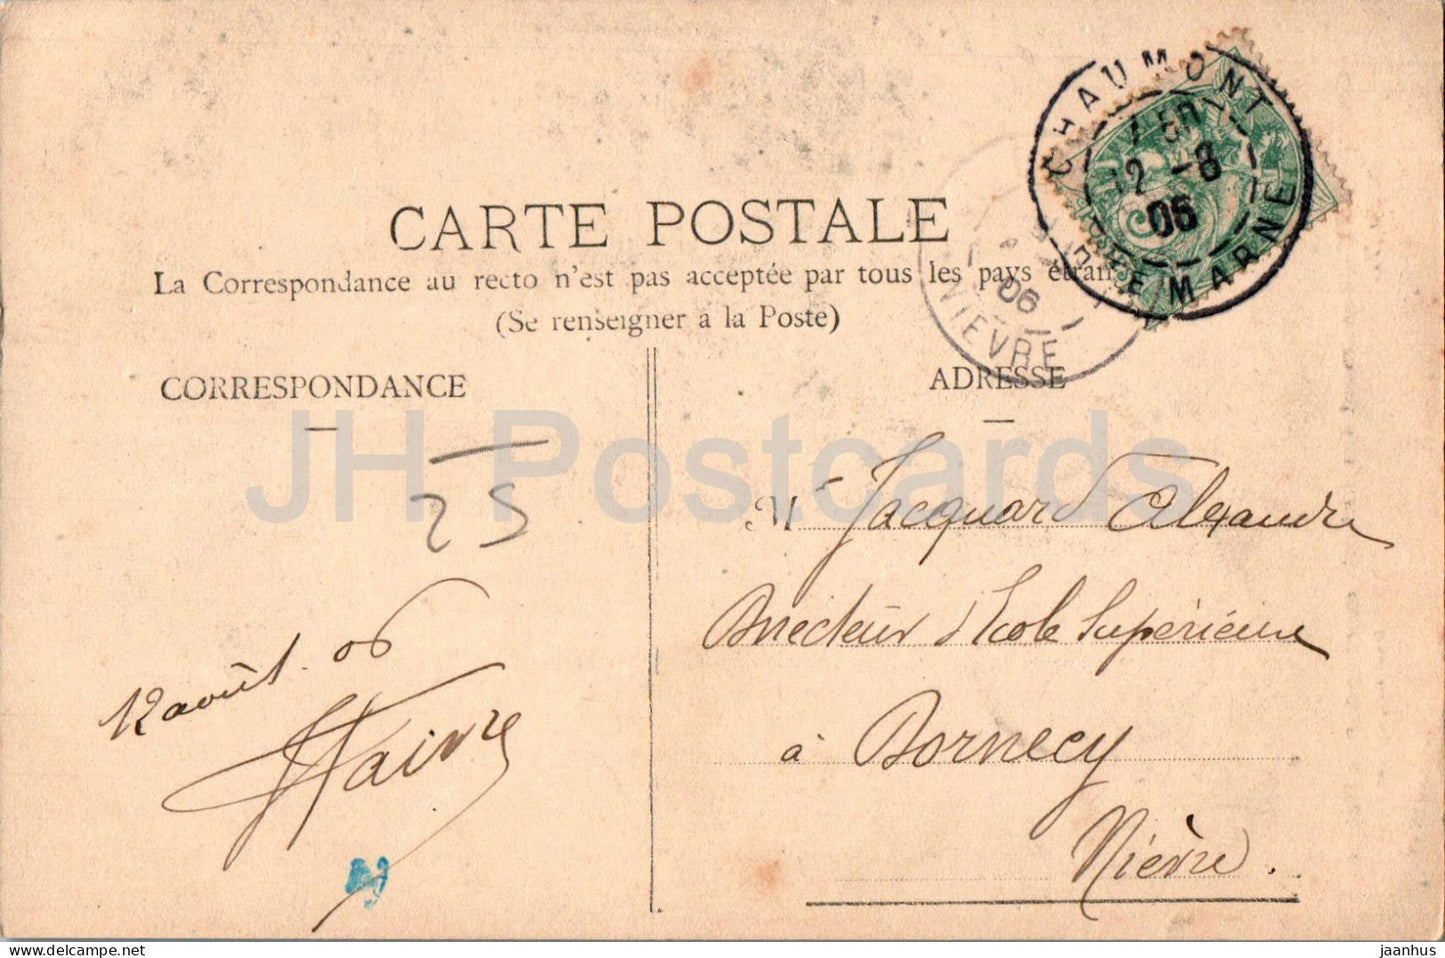 CARTE POSTALE
La Correspondance au recto n'est pas acceptée par tous les pays étran
(Se renseigner à la Poste)
CORRESPONDANCE
ADRESSE
CHAUMONT
12 -8
06
HTE MARNE
06
NIEVRE
JH Postcards
25
Mr Jacquard Alexandre
Directeur d'Ecole Supérieure
à Dornecy
Nièvre.
12 août. 06
Faivre
jaanhus